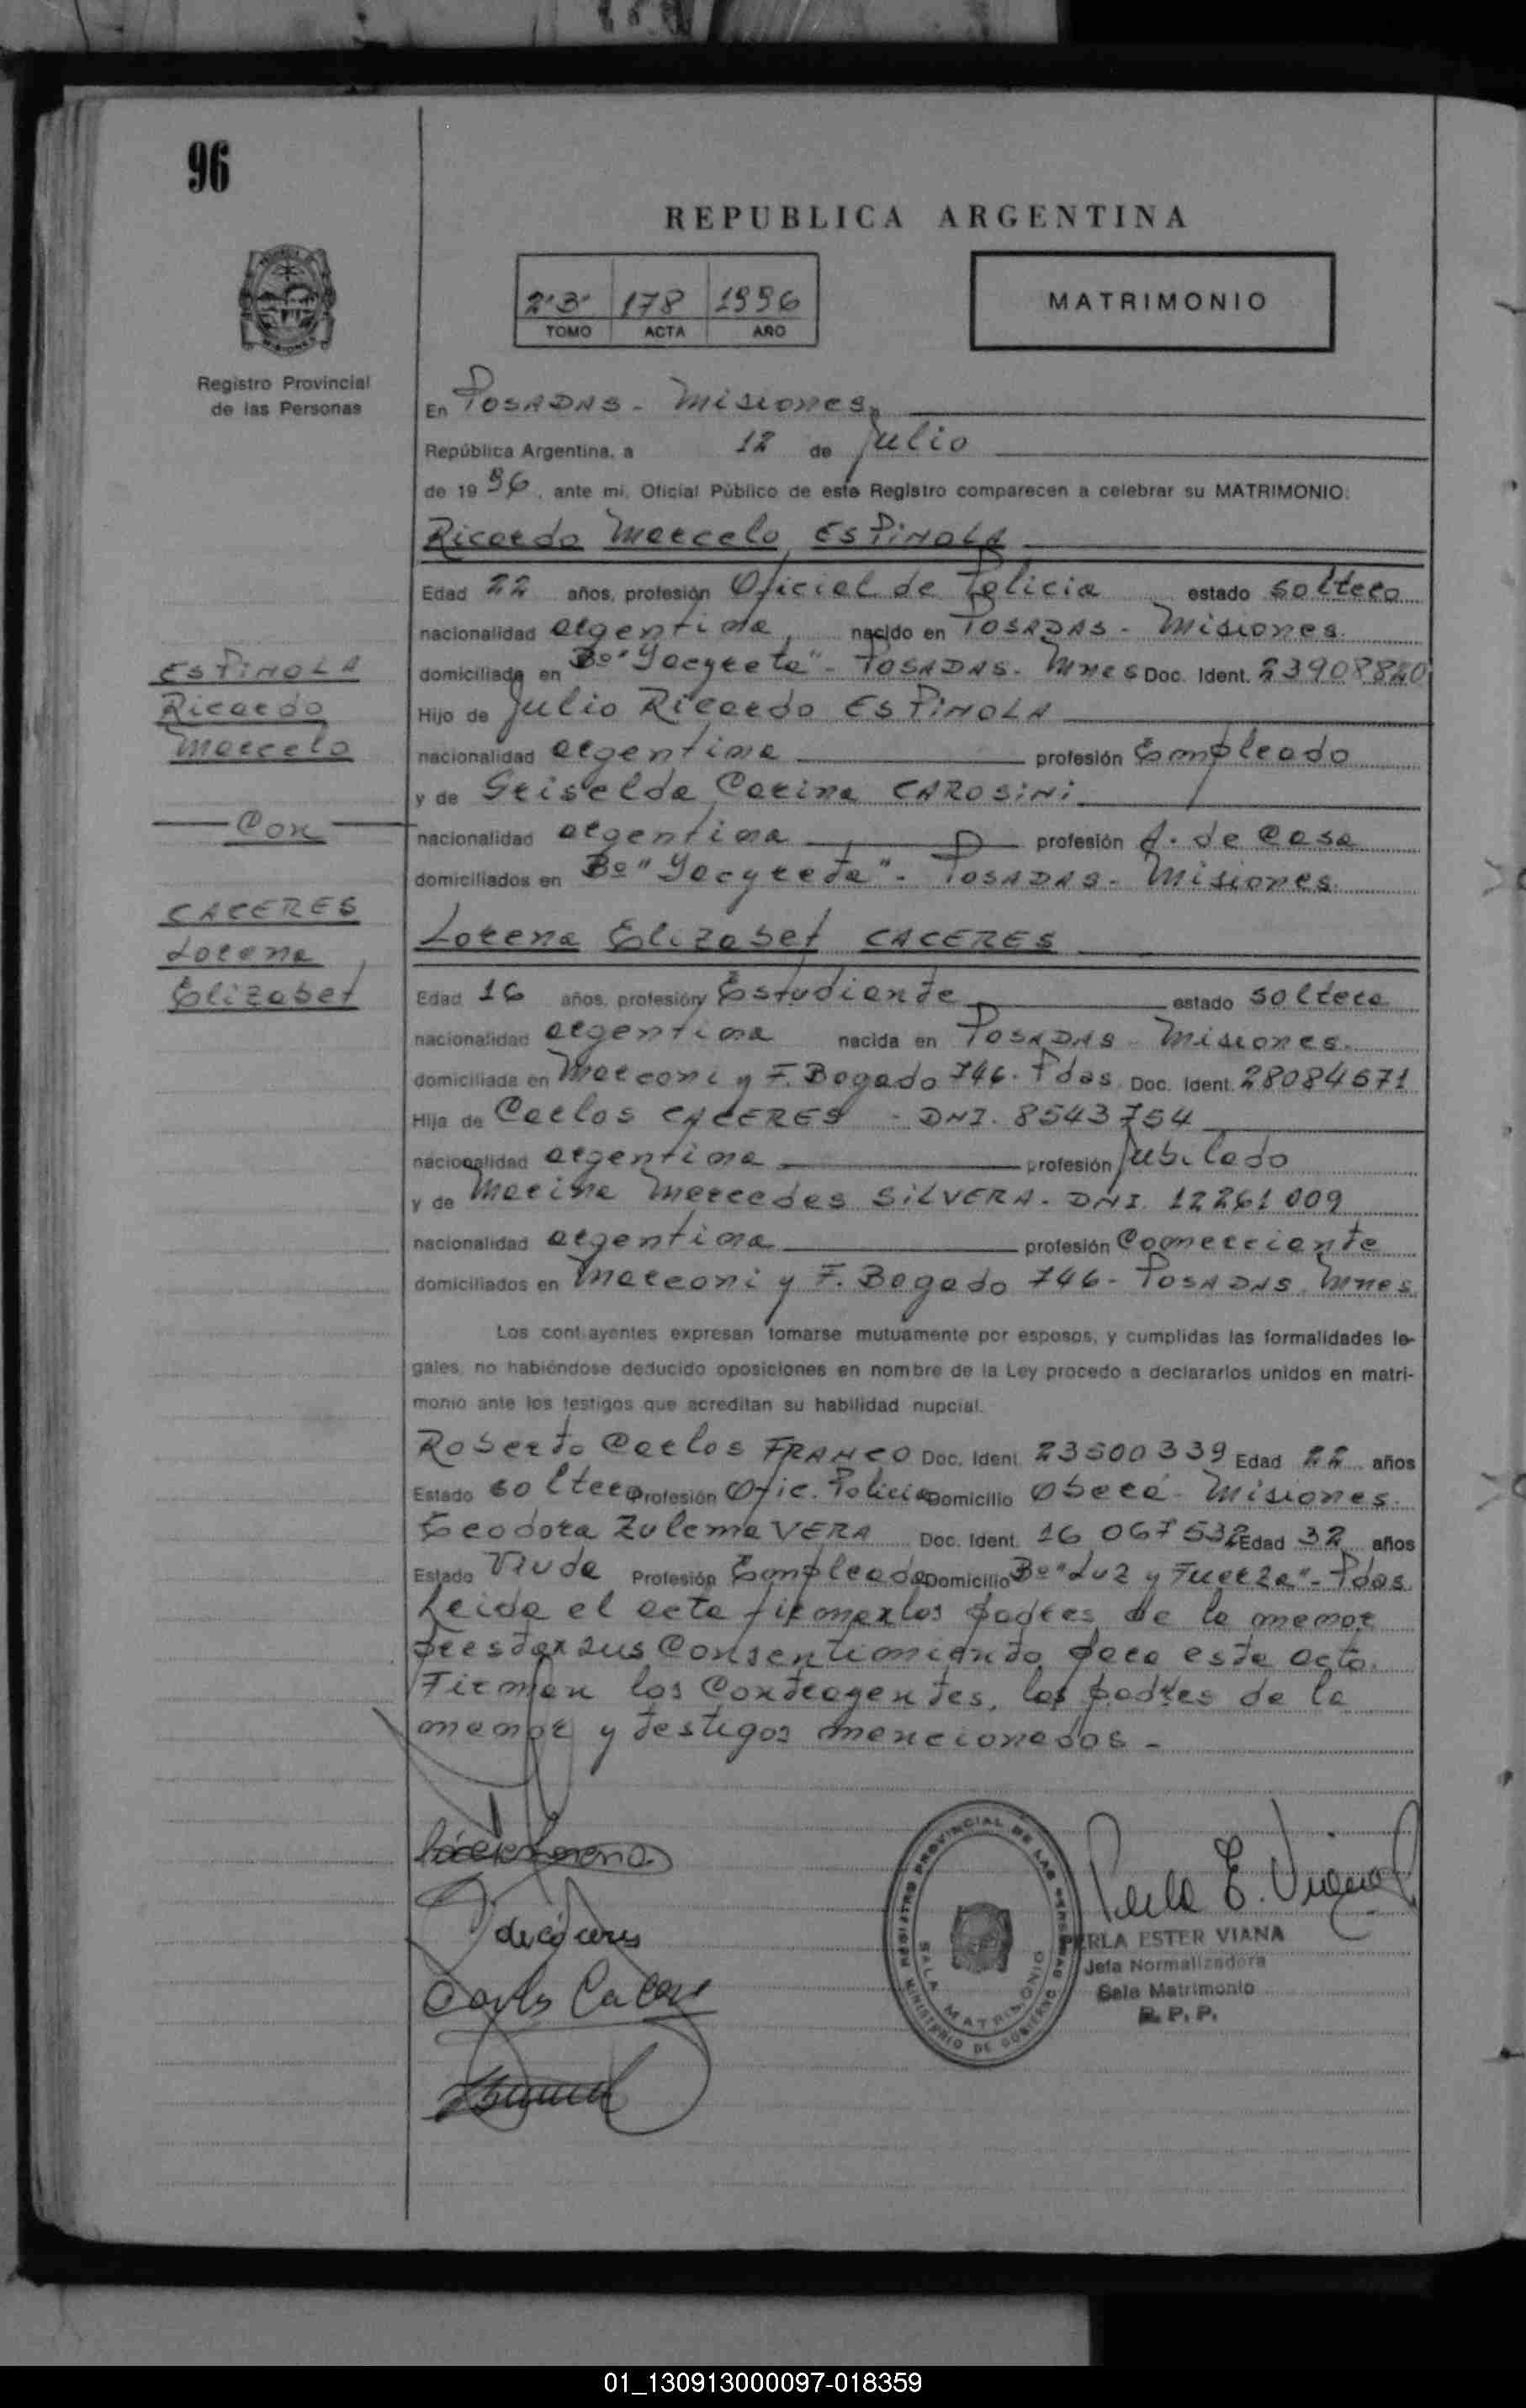 96
REPUBLICA ARGENTINA
2·3· 178 1996
TOMO ACTA AÑO
MATRIMONIO
Registro Provincial
de las Personas
En POSADAS - Misiones.
República Argentina, a 12 de Julio
de 1996, ante mi, Oficial Público de este Registro comparecen a celebrar su MATRIMONIO:
Ricardo Marcelo ESPINOLA
Edad 22 años, profesión Oficial de Policia estado soltero
nacionalidad argentina nacido en POSADAS - Misiones.
domiciliado en Bº "Yacyreta" - POSADAS - Mnes Doc. Ident. 23908820
Hijo de Julio Ricardo ESPINOLA
nacionalidad argentina profesión Empleado
y de Griselda Carina CAROSINI
nacionalidad argentina profesión A. de Casa
domiciliados en Bº "Yacyreta" - POSADAS - Misiones.
ESPINOLA
Ricardo
Marcelo
Con
CACERES
Lorena
Elizabet
Lorena Elizabet CACERES
Edad 16 años, profesión Estudiante estado soltera
nacionalidad argentina nacida en POSADAS - Misiones.
domiciliada en Marconi y F. Bogado 746 - Pdas. Doc. Ident. 28084671
Hija de Carlos CACERES - DNI. 8543754
nacionalidad argentina profesión Jubilado
y de Marina Mercedes SILVERA - DNI. 12261009
nacionalidad argentina profesión Comerciante
domiciliados en Marconi y F. Bogado 746 - POSADAS, Mnes.
Los contrayentes expresan tomarse mutuamente por esposos, y cumplidas las formalidades le-
gales, no habiéndose deducido oposiciones en nombre de la Ley procedo a declararlos unidos en matri-
monio ante los testigos que acreditan su habilidad nupcial.
Roberto Carlos FRANCO Doc. Ident. 23500339 Edad 22 años
Estado soltero Profesión Ofic. Policia Domicilio Oberá - Misiones.
Teodora Zulema VERA Doc. Ident. 16 067532 Edad 32 años
Estado Viuda Profesión Empleada Domicilio Bº "Luz y Fuerza" - Pdas.
Leida el acta firman los padres de la menor
prestan sus Consentimiento para este acto.
Firman los Contragentes, los padres de la
menor y testigos mencionados -
Carlos
REGISTRO PROVINCIAL DE LAS PERSONAS
MINISTERIO DE GOBIERNO
SALA MATRIMONIO
Perla E. Viana
PERLA ESTER VIANA
Jefa Normalizadora
Sala Matrimonio
R. P. P.
01_130913000097-018359